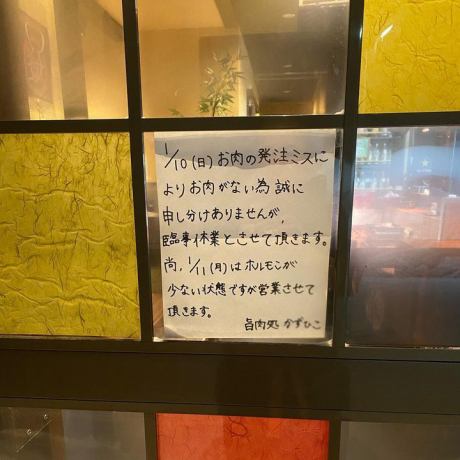 1/10(日)お肉の発注ミスに
よりお肉がない為誠に
申し分けありませんが、
臨事休業とさせて頂きます。
尚、1/11(月)はホルモンが
少ない状態ですが営業させて
頂きます。
旨肉処 かずひこ